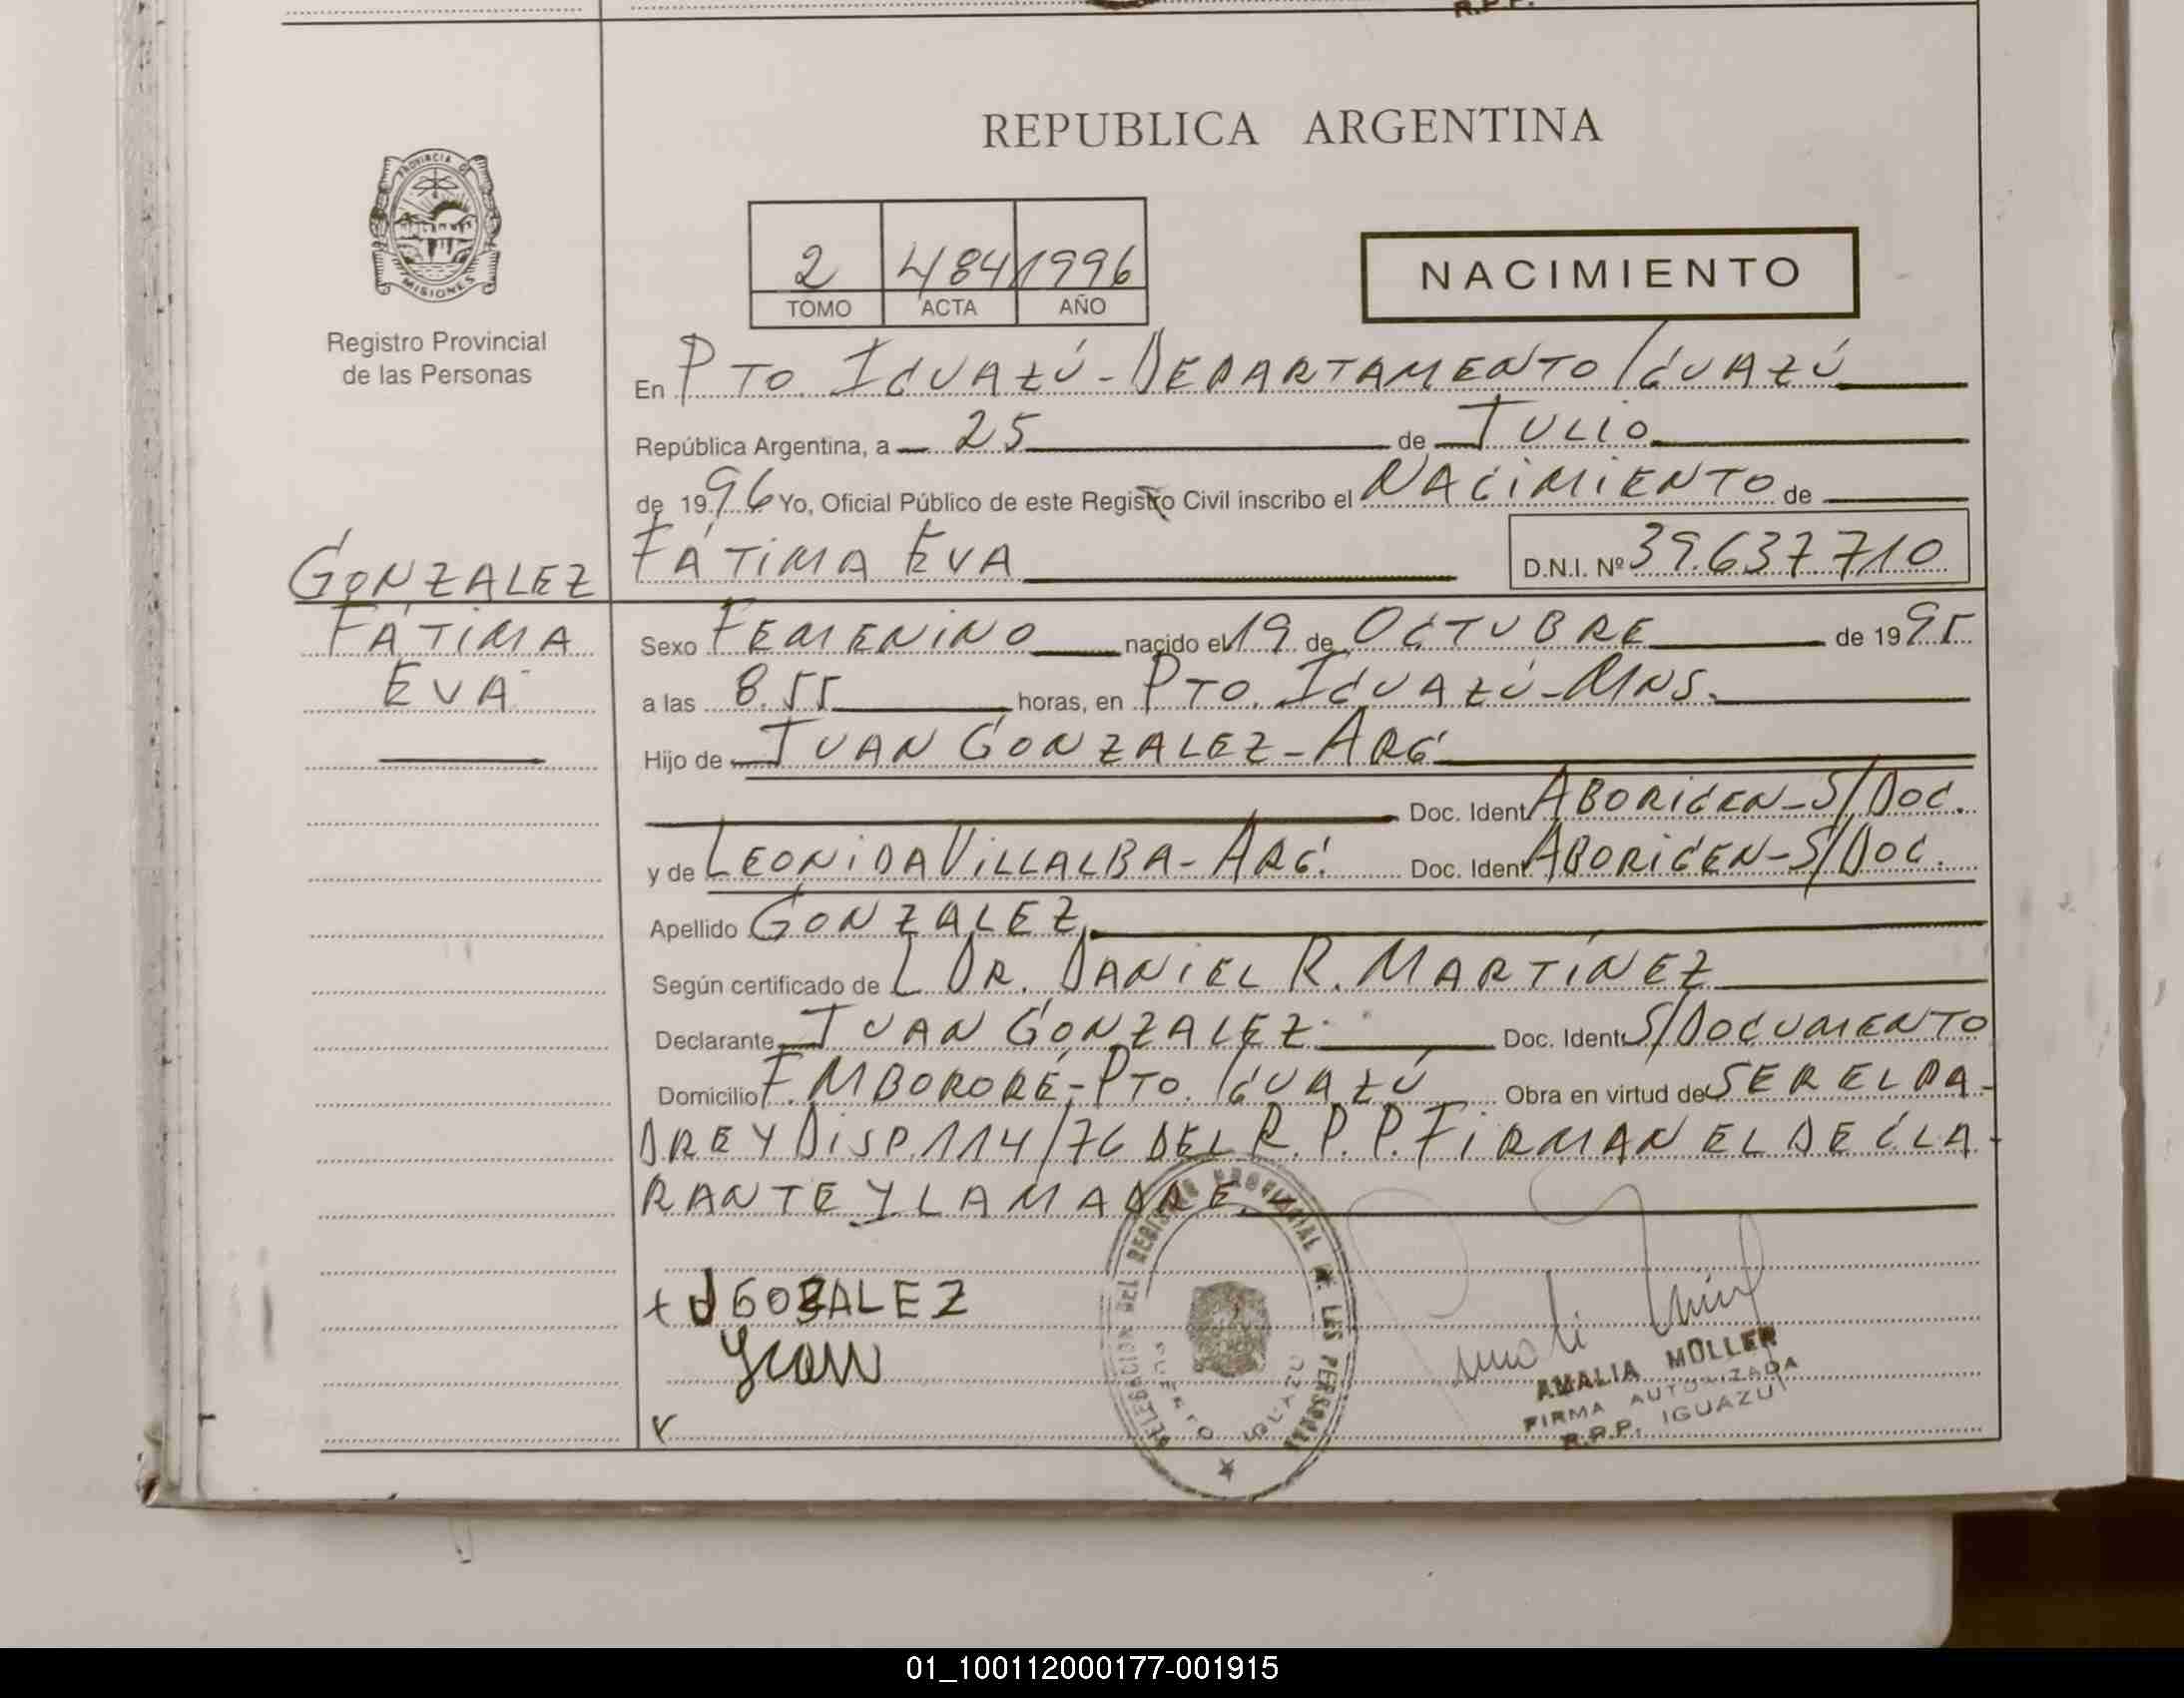 R.P.P.
REPUBLICA ARGENTINA
PROVINCIA DE
MISIONES
Registro Provincial
de las Personas
2 484 1996
TOMO ACTA AÑO
NACIMIENTO
En PTO. IGUAZÚ - DEPARTAMENTO IGUAZÚ
República Argentina, a 25 de JULIO
de 1996 Yo, Oficial Público de este Registro Civil inscribo el NACIMIENTO de
FÁTIMA EVA D.N.I. Nº 39.637.710
GONZALEZ
FÁTIMA
EVA
Sexo FEMENINO nacido el 19 de OCTUBRE de 1995
a las 8.55 horas, en PTO. IGUAZÚ - MNS.
Hijo de JUAN GONZALEZ - ARG.
Doc. Ident. ABORIGEN - S/DOC.
y de LEONIDA VILLALBA - ARG. Doc. Ident. ABORIGEN - S/DOC.
Apellido GONZALEZ
Según certificado de L DR. DANIEL R. MARTÍNEZ
Declarante JUAN GONZALEZ Doc. Ident. S/DOCUMENTO
Domicilio F. MBORORÉ - PTO. IGUAZÚ Obra en virtud de SER EL PA-
DRE Y DISP. 114/76 DEL R.P.P. FIRMAN EL DECLA-
RANTE Y LA MADRE.
+ J GOZALEZ
Juan
DELEGACION DEL REGISTRO PROVINCIAL DE LAS PERSONAS
PUERTO IGUAZU
AMALIA MOLLER
FIRMA AUTORIZADA
R.P.P. IGUAZU
01_100112000177-001915